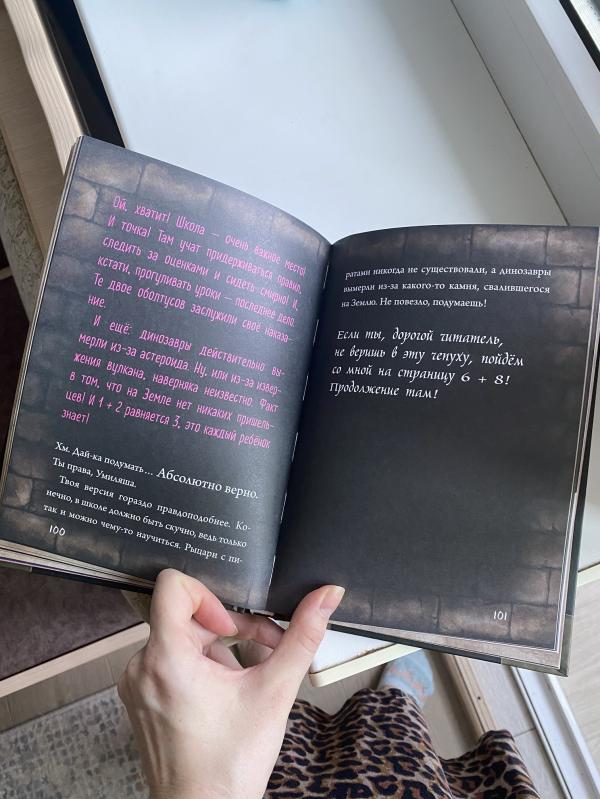 Ой, хватит! Школа — очень важное место!
И точка! Там учат придерживаться правил,
следить за оценками и сидеть смирно! И,
кстати, прогуливать уроки — последнее дело.
Те двое оболтусов заслужили своё наказа-
ние.
И ещё: динозавры действительно вы-
мерли из-за астероида. Ну, или из-за извер-
жения вулкана, наверняка неизвестно. Факт
в том, что на Земле нет никаких пришель-
цев! И 1 + 2 равняется 3, это каждый ребёнок
знает!
Хм. Дай-ка подумать... Абсолютно верно.
Ты права, Умиляша.
Твоя версия гораздо правдоподобнее. Ко-
нечно, в школе должно быть скучно, ведь только
так и можно чему-то научиться. Рыцари с пи-
100
ратами никогда не существовали, а динозавры
вымерли из-за какого-то камня, свалившегося
на Землю. Не повезло, подумаешь!
Если ты, дорогой читатель,
не веришь в эту чепуху, пойдём
со мной на страницу 6 + 8!
Продолжение там!
101